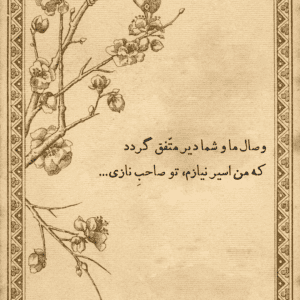 وصال ما و شما دیر متّفق گردد
که من اسیر نیازم، تو صاحبِ نازی...